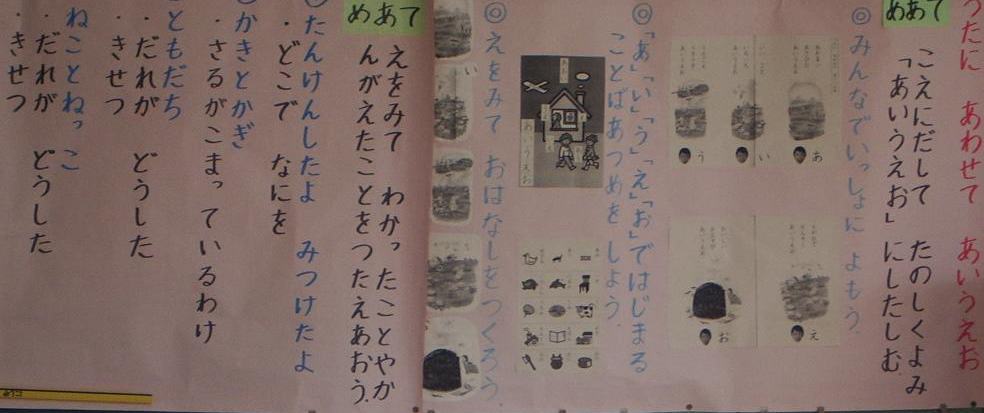 うたに あわせて あいうえお
めあて
こえにだして たのしくよみ
「あいうえお」にしたしむ
◎みんなでいっしょに よもう.
あ
い
う
え
お
◎「あ」「い」「う」「え」「お」ではじまる
ことばあつめを しよう.
あいうえお
◎えをみて おはなしをつくろう.
めあて
えをみて わかったことやか
んがえたことをつたえあおう.
◎たんけんしたよ みつけたよ
・どこで なにを
◎かきとかぎ
・さるがこまっているわけ
ともだち
・だれが どうした
・きせつ
ねことねっこ
・だれが どうした
・きせつ